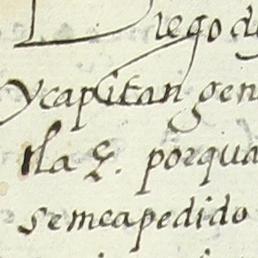 Diego d
y capitan gen
rla q. porqua
semeapedido